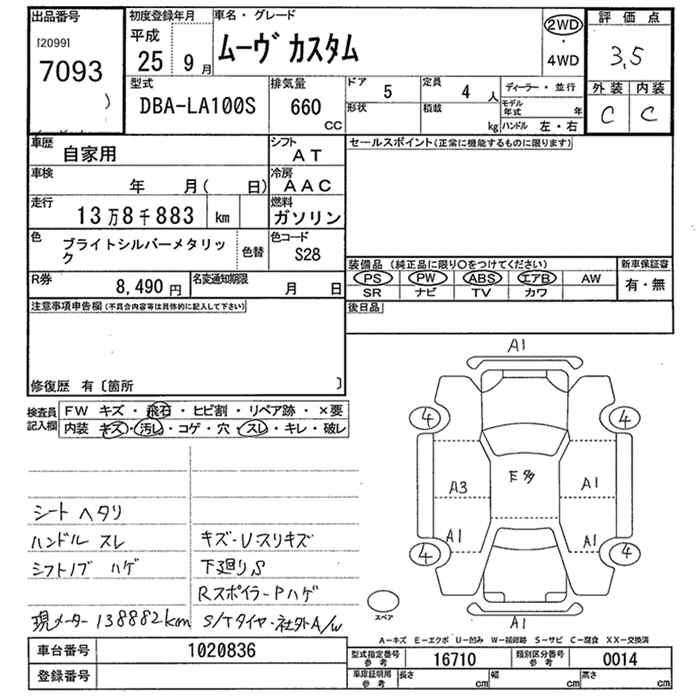 出品番号
[2099]
7093
)
初度登録年月
平成
25 9月
車名・グレード
ムーヴ カスタム
2WD
・
4WD
評価点
3,5
外装 内装
C C
型式
DBA-LA100S
排気量
660
CC
ドア 5
定員 4 人
ディーラー・並行
形状
積載 kg
モデル年式 年
ハンドル 左・右
車歴
自家用
シフト
AT
車検
年 月( 日)
冷房
AAC
走行
13万8千883 km
燃料
ガソリン
色
ブライトシルバーメタリッ
ク
色替
色コード
S28
R券
8,490 円
名変通知期限
月 日
セールスポイント(正常に機能するものに限ります)
装備品 (純正品に限り○をつけてください)
新車保証書
PS PW ABS エアB AW
有・無
SR ナビ TV カワ
後日品
注意事項申告欄(不具合内容等は具体的に記入して下さい)
修復歴 有〔箇所 〕
検査員
記入欄
FW キズ・飛石・ヒビ割・リペア跡・×要
内装 キズ・汚レ・コゲ・穴・スレ・キレ・破レ
シート ヘタリ
ハンドル スレ
シフトノブ ハゲ
現メーター 138882km
キズ・U・スリキズ
下廻りS
Rスポイラー・Pハゲ
S/Tタイヤ・社外A/W
A1
4
4
E多
A3
A1
A1
A1
4
4
A1
スペア
A-キズ E-エクボ U-凹み W-補修跡 S-サビ C-腐食 XX-交換済
車台番号
1020836
登録番号
型式指定番号
参考
16710
類別区分番号
参考
0014
車庫証明用
参考
長さ cm
幅 cm
高さ cm